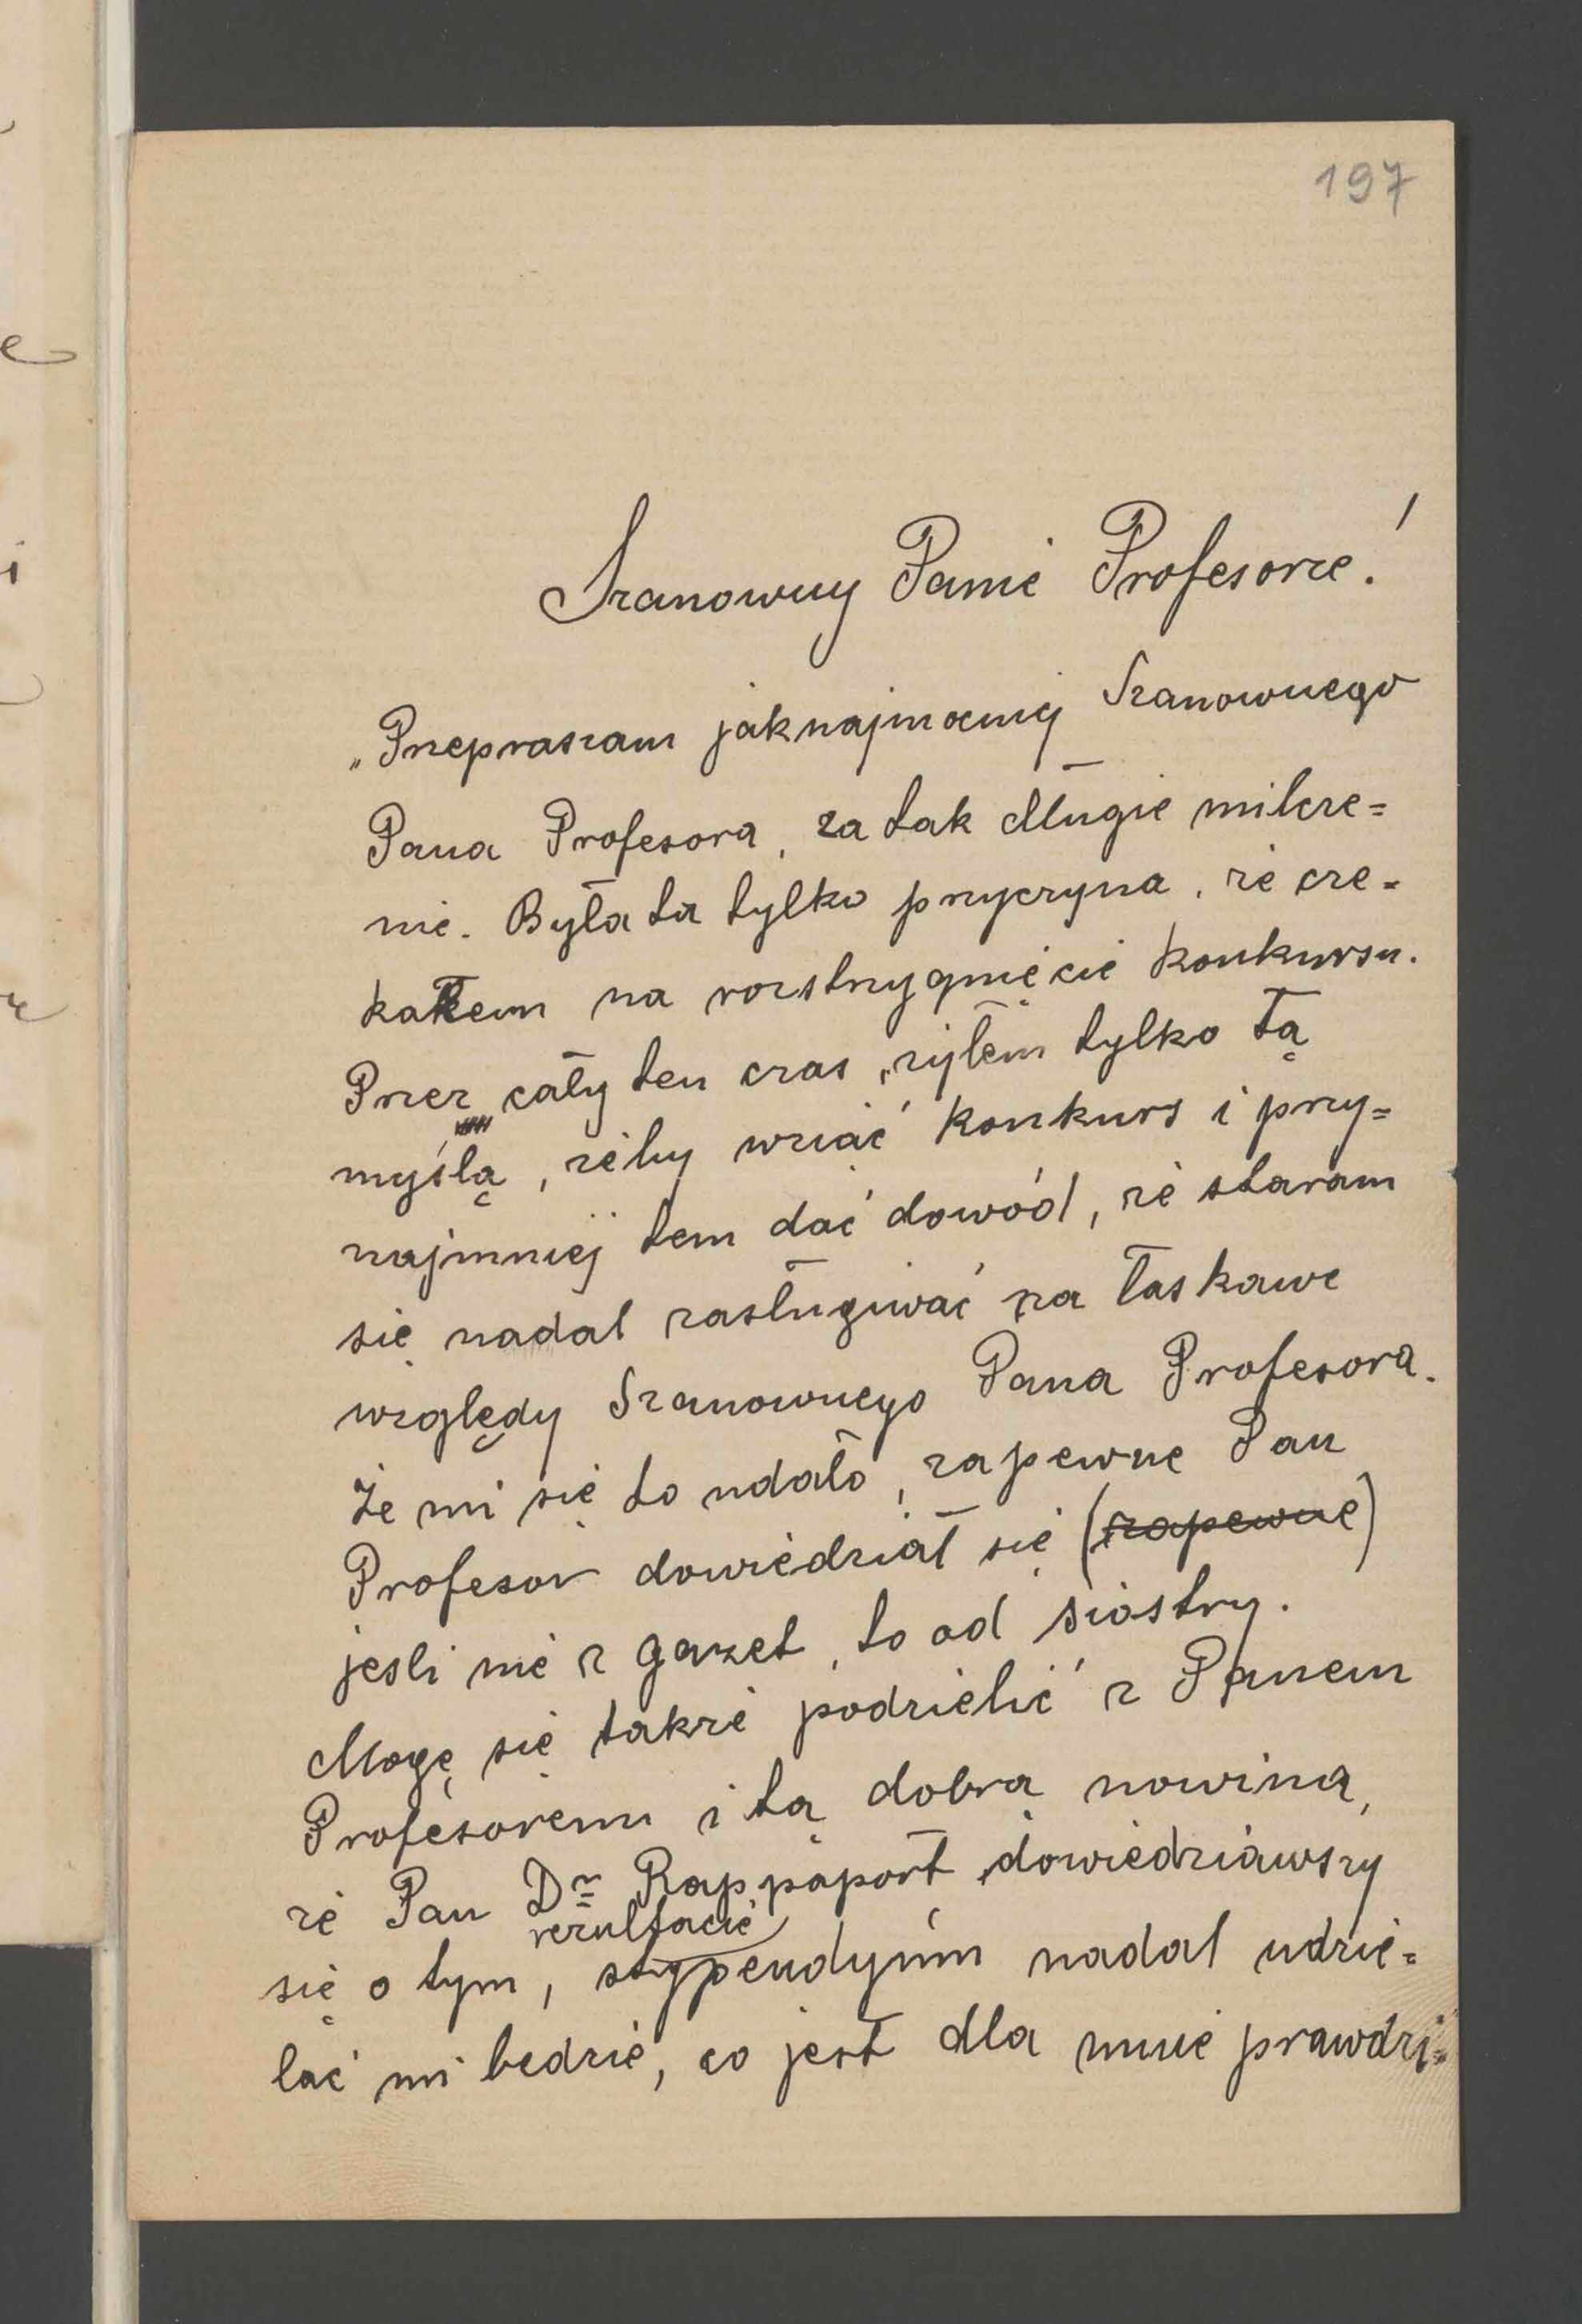 197
Szanowny Panie Profesorze!
„Przepraszam jaknajmocniej Szanownego
Pana Profesora, za tak długie milcze=
nie. Była ta tylko przyczyna, że cze=
kałem na rozstrzygnięcie konkursu.
Przez cały ten czas, żyłem tylko tą
myślą, żeby wziąć konkurs i przy=
najmniej tem dać dowód, że staram
się nadal zasługiwać na łaskawe
względy Szanownego Pana Profesora.
Że mi się to udało, zapewne Pan
Profesor dowiedział się (zapewne)
jesli nie z gazet, to od siostry.
Mogę się także podzielić z Panem
Profesorem i tą dobrą nowiną,
że Pan Dr Rappaport dowiedziawszy
rezultacie
się o tym, stypendyum nadal udzie=
lać mi będzie, co jest dla mnie prawdzi=